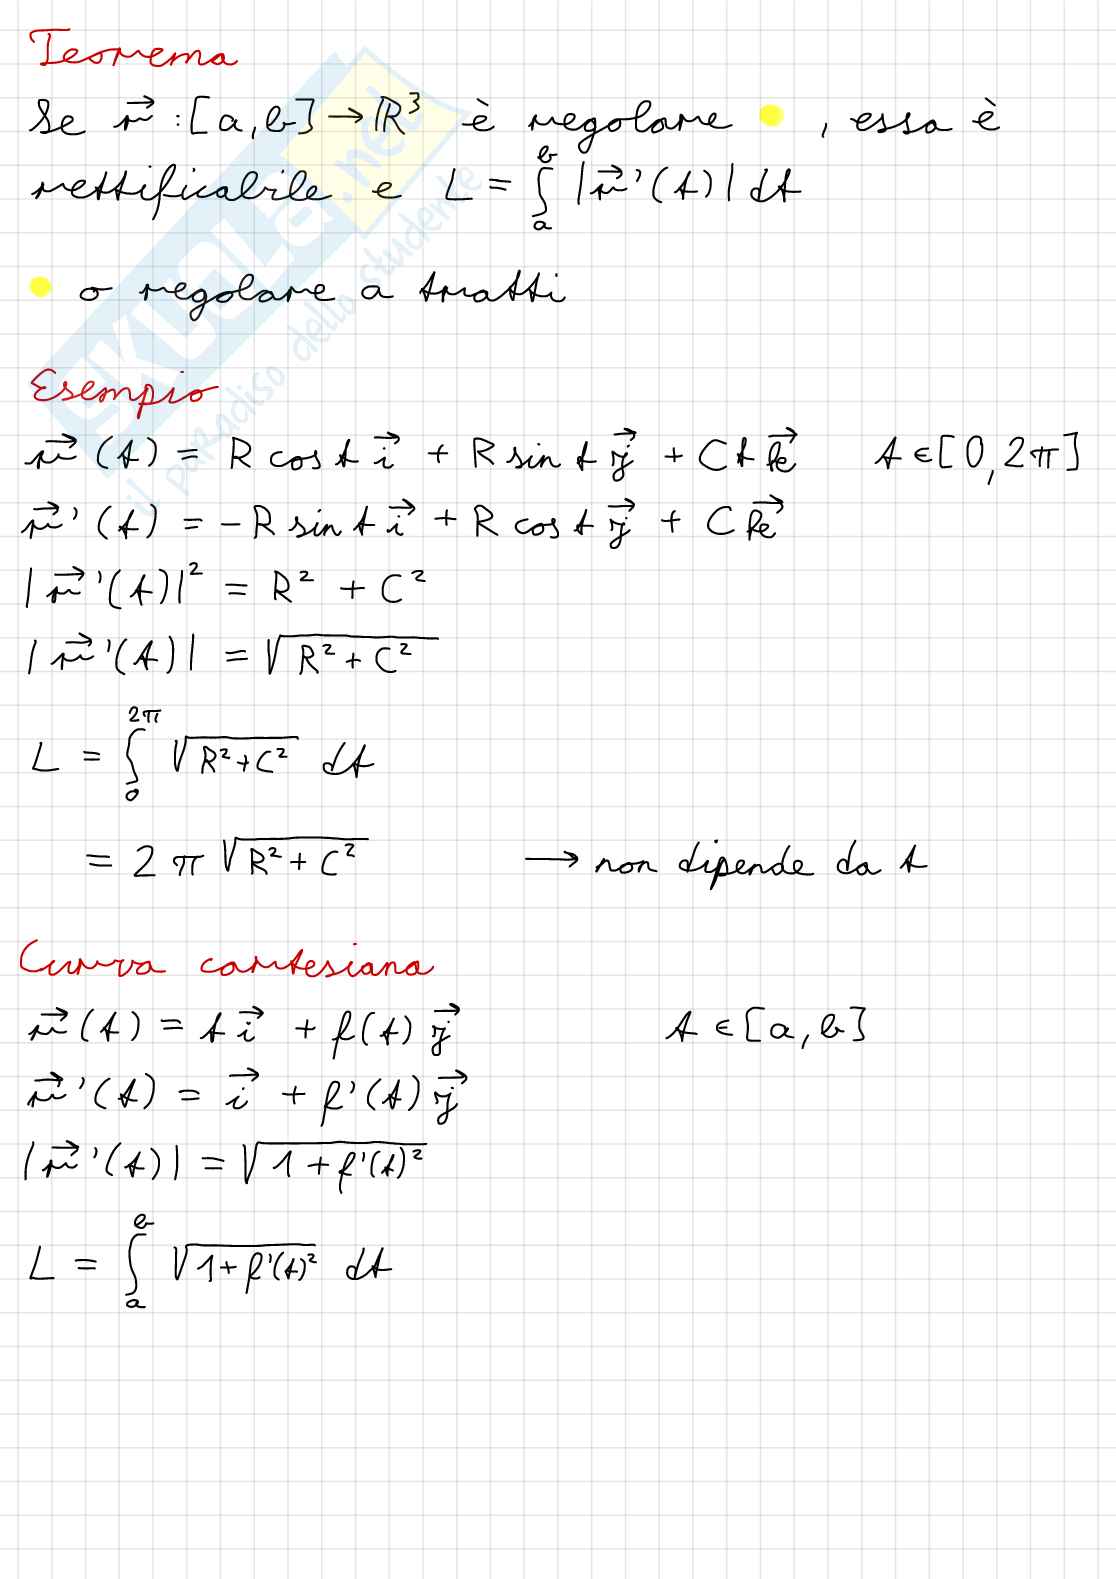 Teorema
Se r⃗ : [a, b] → ℝ³ è regolare ● , essa è
rettificabile e L = ∫ₐᵇ |r⃗'(t)| dt
● o regolare a tratti
Esempio
r⃗(t) = R cos t i⃗ + R sin t j⃗ + C t k⃗   t ∈ [0, 2π]
r⃗'(t) = -R sin t i⃗ + R cos t j⃗ + C k⃗
|r⃗'(t)|² = R² + C²
|r⃗'(t)| = √(R² + C²)
L = ∫₀^2π √(R² + C²) dt
= 2π √(R² + C²)   → non dipende da t
Curva cartesiana
r⃗(t) = t i⃗ + f(t) j⃗   t ∈ [a, b]
r⃗'(t) = i⃗ + f'(t) j⃗
|r⃗'(t)| = √(1 + f'(t)²)
L = ∫ₐᵇ √(1 + f'(t)²) dt
SKUOLA.net
il paradiso dello studente